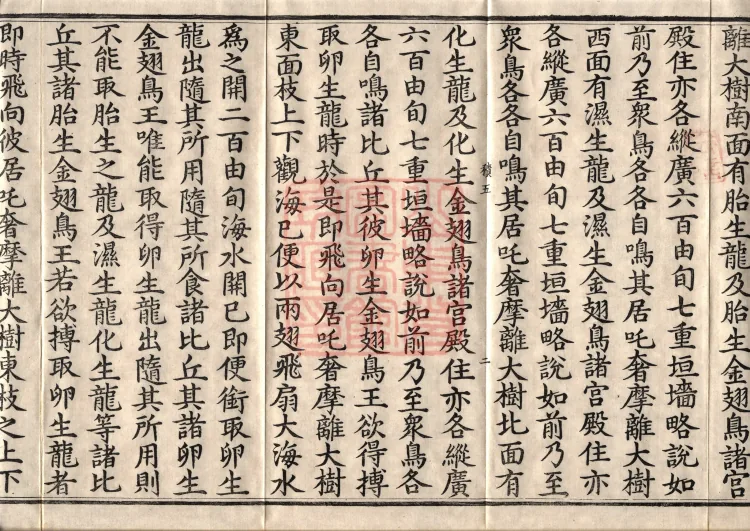 離大樹南面有胎生龍及胎生金翅鳥諸宮
殿住亦各縱廣六百由旬七重垣墻略說如
前乃至衆鳥各各自鳴其居吒奢摩離大樹
西面有濕生龍及濕生金翅鳥諸宮殿住亦
各縱廣六百由旬七重垣墻略說如前乃至
衆鳥各各自鳴其居吒奢摩離大樹北面有
二
化生龍及化生金翅鳥諸宮殿住亦各縱廣
六百由旬七重垣墻略說如前乃至衆鳥各
各自鳴諸比丘其彼卵生金翅鳥王欲得搏
取卵生龍時於是即飛向居吒奢摩離大樹
東面枝上下觀海已便以兩翅飛扇大海水
爲之開二百由旬海水開已即便銜取卵生
龍出隨其所用隨其所食諸比丘其諸卵生
金翅鳥王唯能取得卵生龍出隨其所用則
不能取胎生之龍及濕生龍化生龍等諸比
丘其諸胎生金翅鳥王若欲搏取卵生龍者
即時飛向彼居吒奢摩離大樹東枝之上下